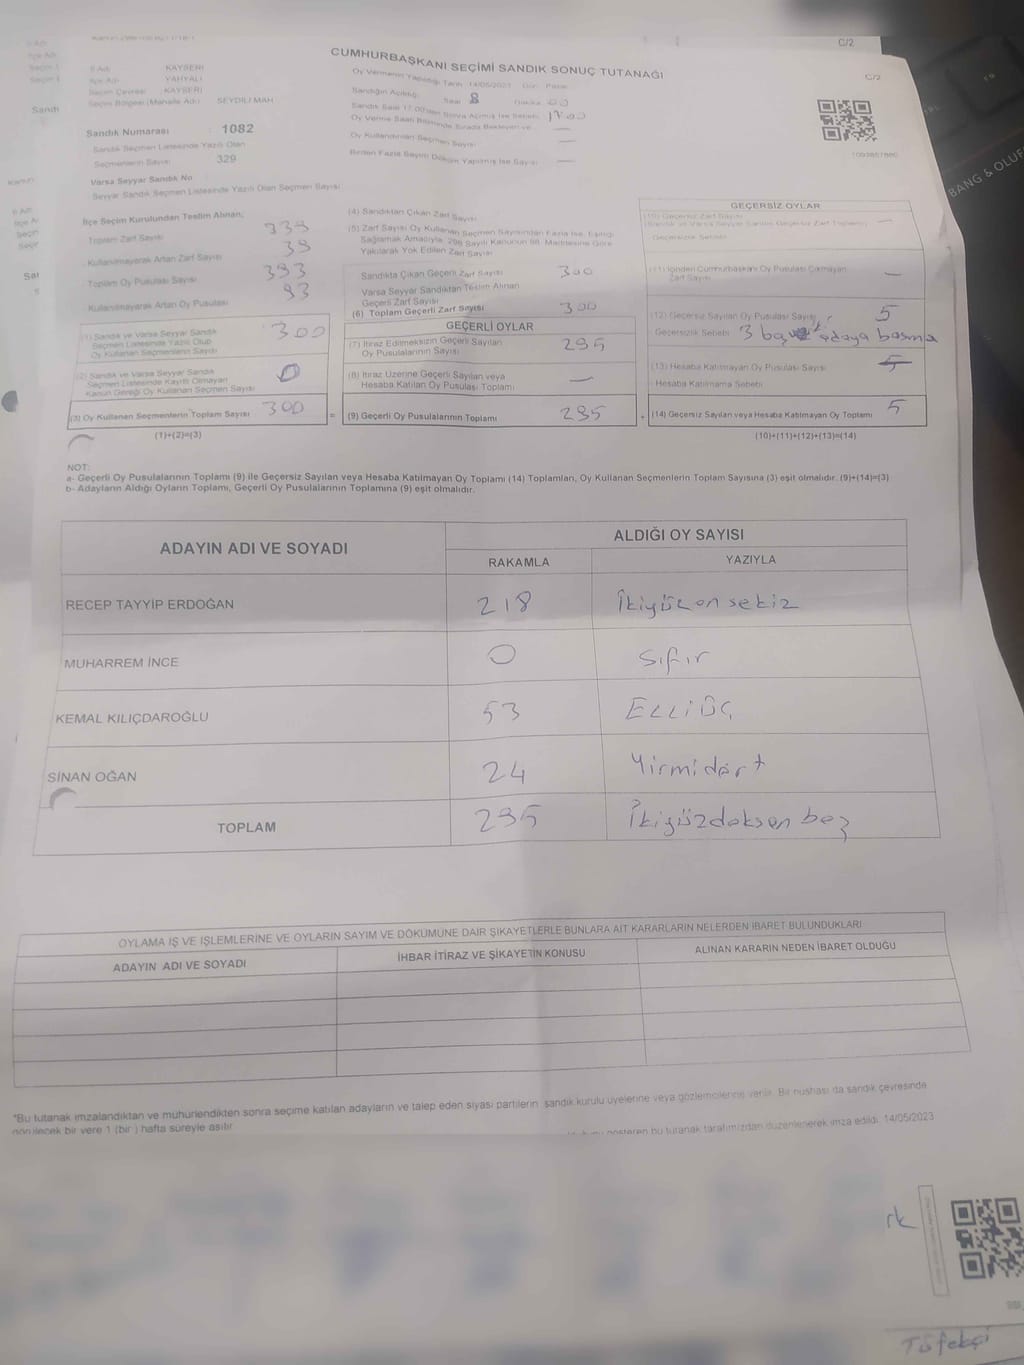 C/2
CUMHURBAŞKANI SEÇİMİ SANDIK SONUÇ TUTANAĞI
C/2
İl Adı KAYSERİ
İlçe Adı YAHYALI
Seçim Çevresi KAYSERİ
Seçim Bölgesi (Mahalle Adı) SEYDİLİ MAH
Sandık Numarası : 1082
Sandık Seçmen Listesinde Yazılı Olan
Seçmenlerin Sayısı 329
Varsa Seyyar Sandık No
Seyyar Sandık Seçmen Listesinde Yazılı Olan Seçmen Sayısı
Oy Vermenin Yapıldığı Tarih 14/05/2023 Gün Pazar
Sandığın Açıldığı Saat 8 Dakika 00
Oy Kullandırılan Seçmen Sayısı —
Birden Fazla Sayım Döküm Yapılmış İse Sayısı —
BANG & OLUF
İlçe Seçim Kurulundan Teslim Alınan,
Toplam Zarf Sayısı 339
Kullanılmayarak Artan Zarf Sayısı 39
Toplam Oy Pusulası Sayısı 393
Kullanılmayarak Artan Oy Pusulası 93
(1) Sandık ve Varsa Seyyar Sandık
Seçmen Listesinde Yazılı Olup
Oy Kullanan Seçmenlerin Sayısı 300
(2) Sandık ve Varsa Seyyar Sandık
Seçmen Listesinde Kayıtlı Olmayan
Kanun Gereği Oy Kullanan Seçmen Sayısı 0
(3) Oy Kullanan Seçmenlerin Toplam Sayısı 300
(1)+(2)=(3)
(4) Sandıktan Çıkan Zarf Sayısı
(5) Zarf Sayısı Oy Kullanan Seçmen Sayısından Fazla İse, Eşitliği
Sağlamak Amacıyla; 298 Sayılı Kanunun 98. Maddesine Göre
Yakılarak Yok Edilen Zarf Sayısı
Sandıkta Çıkan Geçerli Zarf Sayısı 300
Varsa Seyyar Sandıktan Teslim Alınan
Geçerli Zarf Sayısı
(6) Toplam Geçerli Zarf Sayısı 300
GEÇERLİ OYLAR
(7) İtiraz Edilmeksizin Geçerli Sayılan
Oy Pusulalarının Sayısı 295
(8) İtiraz Üzerine Geçerli Sayılan veya
Hesaba Katılan Oy Pusulası Toplamı —
= (9) Geçerli Oy Pusulalarının Toplamı 295
GEÇERSİZ OYLAR
(10) Geçersiz Zarf Sayısı
(Sandık ve Varsa Seyyar Sandık Geçersiz Zarf Toplamı) —
Geçersizlik Sebebi
(11) İçinden Cumhurbaşkanı Oy Pusulası Çıkmayan
Zarf Sayısı —
(12) Geçersiz Sayılan Oy Pusulası Sayısı 5
Geçersizlik Sebebi 3 adaya basma
(13) Hesaba Katılmayan Oy Pusulası Sayısı
Hesaba Katılmama Sebebi
+ (14) Geçersiz Sayılan veya Hesaba Katılmayan Oy Toplamı 5
(10)+(11)+(12)+(13)=(14)
NOT:
a- Geçerli Oy Pusulalarının Toplamı (9) ile Geçersiz Sayılan veya Hesaba Katılmayan Oy Toplamı (14) Toplamları, Oy Kullanan Seçmenlerin Toplam Sayısına (3) eşit olmalıdır. (9)+(14)=(3)
b- Adayların Aldığı Oyların Toplamı, Geçerli Oy Pusulalarının Toplamına (9) eşit olmalıdır.
ADAYIN ADI VE SOYADI ALDIĞI OY SAYISI
RAKAMLA YAZIYLA
RECEP TAYYİP ERDOĞAN 218 İkiyüz on sekiz
MUHARREM İNCE 0 Sıfır
KEMAL KILIÇDAROĞLU 53 ELLİ ÜÇ
SİNAN OĞAN 24 Yirmi dört
TOPLAM 295 İkiyüzdoksan beş
OYLAMA İŞ VE İŞLEMLERİNE VE OYLARIN SAYIM VE DÖKÜMÜNE DAİR ŞİKAYETLERLE BUNLARA AİT KARARLARIN NELERDEN İBARET BULUNDUKLARI
ADAYIN ADI VE SOYADI İHBAR İTİRAZ VE ŞİKAYETİN KONUSU ALINAN KARARIN NEDEN İBARET OLDUĞU
*Bu tutanak imzalandıktan ve mühürlendikten sonra seçime katılan adayların ve talep eden siyasi partilerin, sandık kurulu üyelerine veya gözlemcilerine verilir. Bir nüshası da sandık çevresinde
görülecek bir yere 1 (bir) hafta süreyle asılır.
gösteren bu tutanak tarafımızdan düzenlenerek imza edildi. 14/05/2023
rk
Tüfekçi